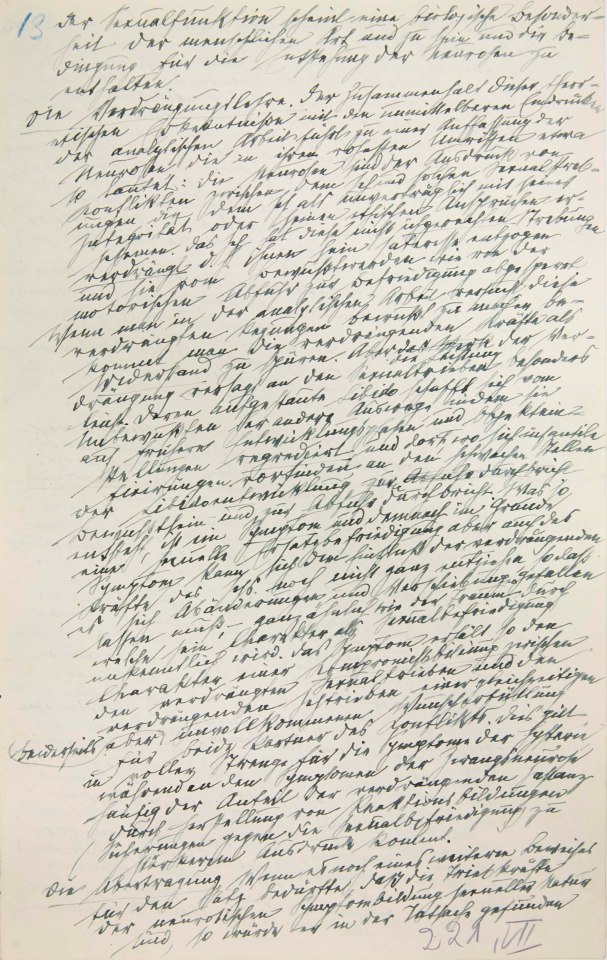 13 der Sexualfunktion scheint eine biologische Besonder-
heit der menschlichen Art und zu sein und die Be-
dingung für die Entstehung der Neurosen zu
enthalten.
Die Verdrängungslehre. Der Zusammenhalt dieser theor-
etischen Erkenntnisse mit den unmittelbaren Eindrücken
der analytischen Arbeit führt zu einer Auffassung der
Neurosen die in ihren rohesten Umrissen etwa
so lautet: die Neurosen sind der Ausdruck von
Konflikten zwischen dem Ich und solchen Sexualstreb-
ungen die dem Ich als unverträglich mit seiner
Integrität oder seinen ethischen Ansprüchen er-
scheinen. Das Ich hat diese nicht ichgerechten Strebungen
verdrängt d. i. ihnen sein Interesse entzogen
und sie vom Bewußtwerden wie von der
motorischen Abfuhr zur Befriedigung abgesperrt.
Wenn man in der analytischen Arbeit versucht, diese
verdrängten Regungen bewußt zu machen, be-
kommt man die verdrängenden Kräfte als
Widerstand zu spüren. Aber die Leistung der Ver-
drängung versagt an den Sexualtrieben besonders
leicht. Deren aufgestaute Libido schafft sich vom
Unbewußten her andere Auswege indem sie
auf frühere Entwicklungsphasen und Objektein-
stellungen regrediert und dort, wo sich infantile
Fixirungen vorfinden an den schwachen Stellen
der Libidoentwicklung zum
Bewußtsein und zur Abfuhr durchbricht. Was so
entsteht, ist ein Symptom und demnach im Grunde
eine sexuelle Ersatzbefriedigung, aber auch das
Symptom kann sich dem Einfluß der verdrängenden
Kräfte des Ichs noch nicht ganz entziehen, sodaß
es sich Abänderungen und Verschiebungen gefallen
lassen muß – ganz ähnlich wie der Traum – durch
welche sein Charakter als Sexualbefriedigung
unkenntlich wird. Das Symptom erhält so den
Charakter einer Kompromißbildung zwischen
den verdrängten Sexualtrieben und den
verdrängenden Ichtrieben, einer gleichzeitigen
beiderseits aber unvollkommenen Wunscherfüllung
für beide Partner des Konflikts. Dies gilt
in voller Strenge für die Symptome der Hysterie
während an den Symptomen der Zwangsneurose
häufig der Anteil der verdrängenden Instanz
durch Herstellung von Reaktionsbildungen
(Sicherungen gegen die Sexualbefriedigung) zu
stärkerem Ausdruck kommt.
Die Übertragung. Wenn es noch eines weiteren Beweises
für den Satz bedürfte, daß die Triebkräfte
der neurotischen Symptombildung sexueller Natur
sind, so würde er in der Tatsache gefunden
221, VII